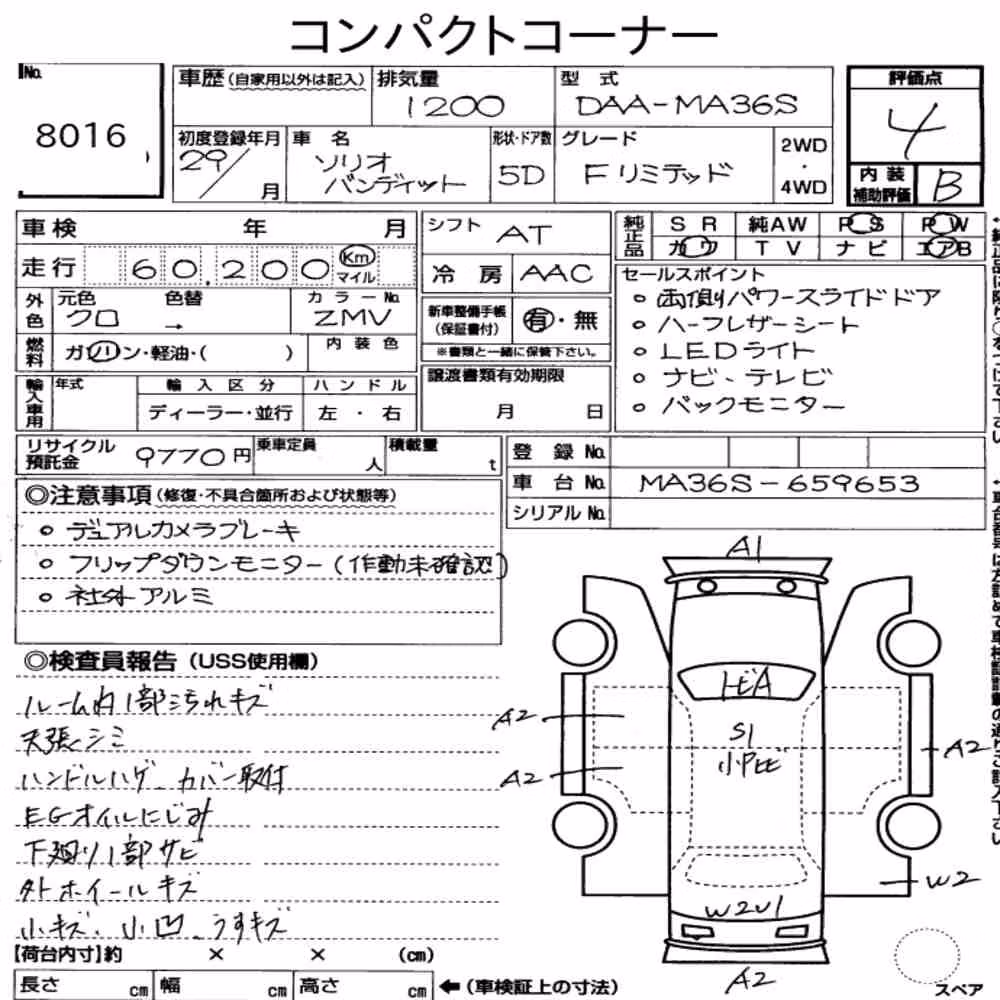 コンパクトコーナー
No. 8016
車歴(自家用以外は記入) 排気量 1200 型式 DAA-MA36S 評価点 4
初度登録年月 29/ 月 車名 ソリオ バンディット 形状・ドア数 5D グレード Fリミテッド 2WD・4WD 内装補助評価 B
車検 年 月 シフト AT
走行 60,200 Km マイル 冷房 AAC
純正品 SR 純AW PS PW
カワ TV ナビ エアB
外色 元色 クロ 色替 → カラーNo. ZMV
新車整備手帳(保証書付) 有・無
※書類と一緒に保管下さい。
燃料 ガソリン・軽油・( ) 内装色
輸入車用 年式 輸入区分 ディーラー・並行 ハンドル 左・右
譲渡書類有効期限 月 日
セールスポイント
○両側パワースライドドア
○ハーフレザーシート
○LEDライト
○ナビ、テレビ
○バックモニター
リサイクル預託金 9770円 乗車定員 人 積載量 t
登録No.
車台No. MA36S-659653
シリアルNo.
◎注意事項(修復・不具合箇所および状態等)
○デュアルカメラブレーキ
○フリップダウンモニター(作動未確認)
○社外アルミ
◎検査員報告(USS使用欄)
ルーム内1部汚れキズ
天張シミ
ハンドルハゲ、カバー取付
EGオイルにじみ
下廻り1部サビ
外ホイールキズ
小キズ、小凹、うすキズ
【荷台内寸】約 × × (cm)
長さ cm 幅 cm 高さ cm ←(車検証上の寸法)
A1
トビA
S1
A2
A2
A2
W2
W2U1
A2
スペア